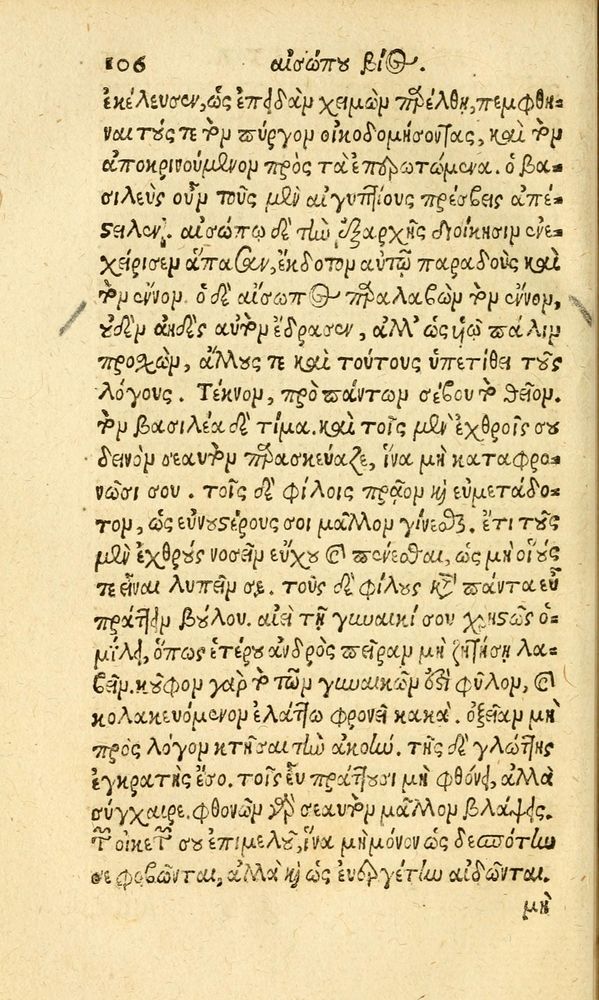 106 αἰσώπου βίος.
ἐκέλευσεν, ὡς ἐπειδὰν χειμὼν παρέλθῃ, πεμφθῆ-
ναι τούς τε τὸν πύργον οἰκοδομήσοντας, καὶ τὸν
ἀποκρινούμενον πρὸς τὰ ἐπερωτώμενα. ὁ βα-
σιλεὺς οὖν τοὺς μὲν αἰγυπτίους πρέσβεις ἀπέ-
στειλεν. αἰσώπῳ δὲ τὴν ἐξαρχῆς διοίκησιν ἐνε-
χείρισεν ἅπασαν, ἔκδοτον αὐτῷ παραδοὺς καὶ
τὸν ἔννον. ὁ δὲ αἴσωπος παραλαβὼν τὸν ἔννον,
οὐδὲν ἀηδὲς αὐτὸν ἔδρασεν, ἀλλ' ὡς υἱῷ πάλιν
προσχὼν, ἄλλους τε καὶ τούτους ὑπετίθει τοὺς
λόγους. Τέκνον, πρὸ πάντων σέβου τὸ θεῖον.
τὸν βασιλέα δὲ τίμα. καὶ τοῖς μὲν ἐχθροῖς σου
δεινὸν σεαυτὸν παρασκεύαζε, ἵνα μὴ καταφρο-
νῶσί σου. τοῖς δὲ φίλοις πρᾷον καὶ εὐμετάδο-
τον, ὡς εὐνουστέρους σοι μᾶλλον γίνεσθαι. ἔτι τοὺς
μὲν ἐχθροὺς νοσεῖν εὔχου καὶ πένεσθαι, ὡς μὴ οἵους
τε εἶναι λυπεῖν σε. τοὺς δὲ φίλους κατὰ πάντα εὖ
πράττειν βούλου. αἰεὶ τῇ γυναικί σου χρηστῶς ὁ-
μίλει, ὅπως ἑτέρου ἀνδρὸς πεῖραν μὴ ζητήσῃ λα-
βεῖν. κοῦφον γὰρ τὸ τῶν γυναικῶν ἐστὶ φῦλον, καὶ
κολακευόμενον ἐλάττω φρονεῖ κακά. ὀξεῖαν μὲν
πρὸς λόγον κτῆσαι τὴν ἀκοήν. τῆς δὲ γλώττης
ἐγκρατὴς ἔσο. τοῖς εὖ πράττουσι μὴ φθόνει, ἀλλὰ
σύγχαιρε. φθονῶν γὰρ σεαυτὸν μᾶλλον βλάψεις.
τῶν οἰκετῶν σου ἐπιμελοῦ, ἵνα μὴ μόνον ὡς δεσπότην
σε φοβῶνται, ἀλλὰ καὶ ὡς εὐεργέτην αἰδῶνται.
μὴ